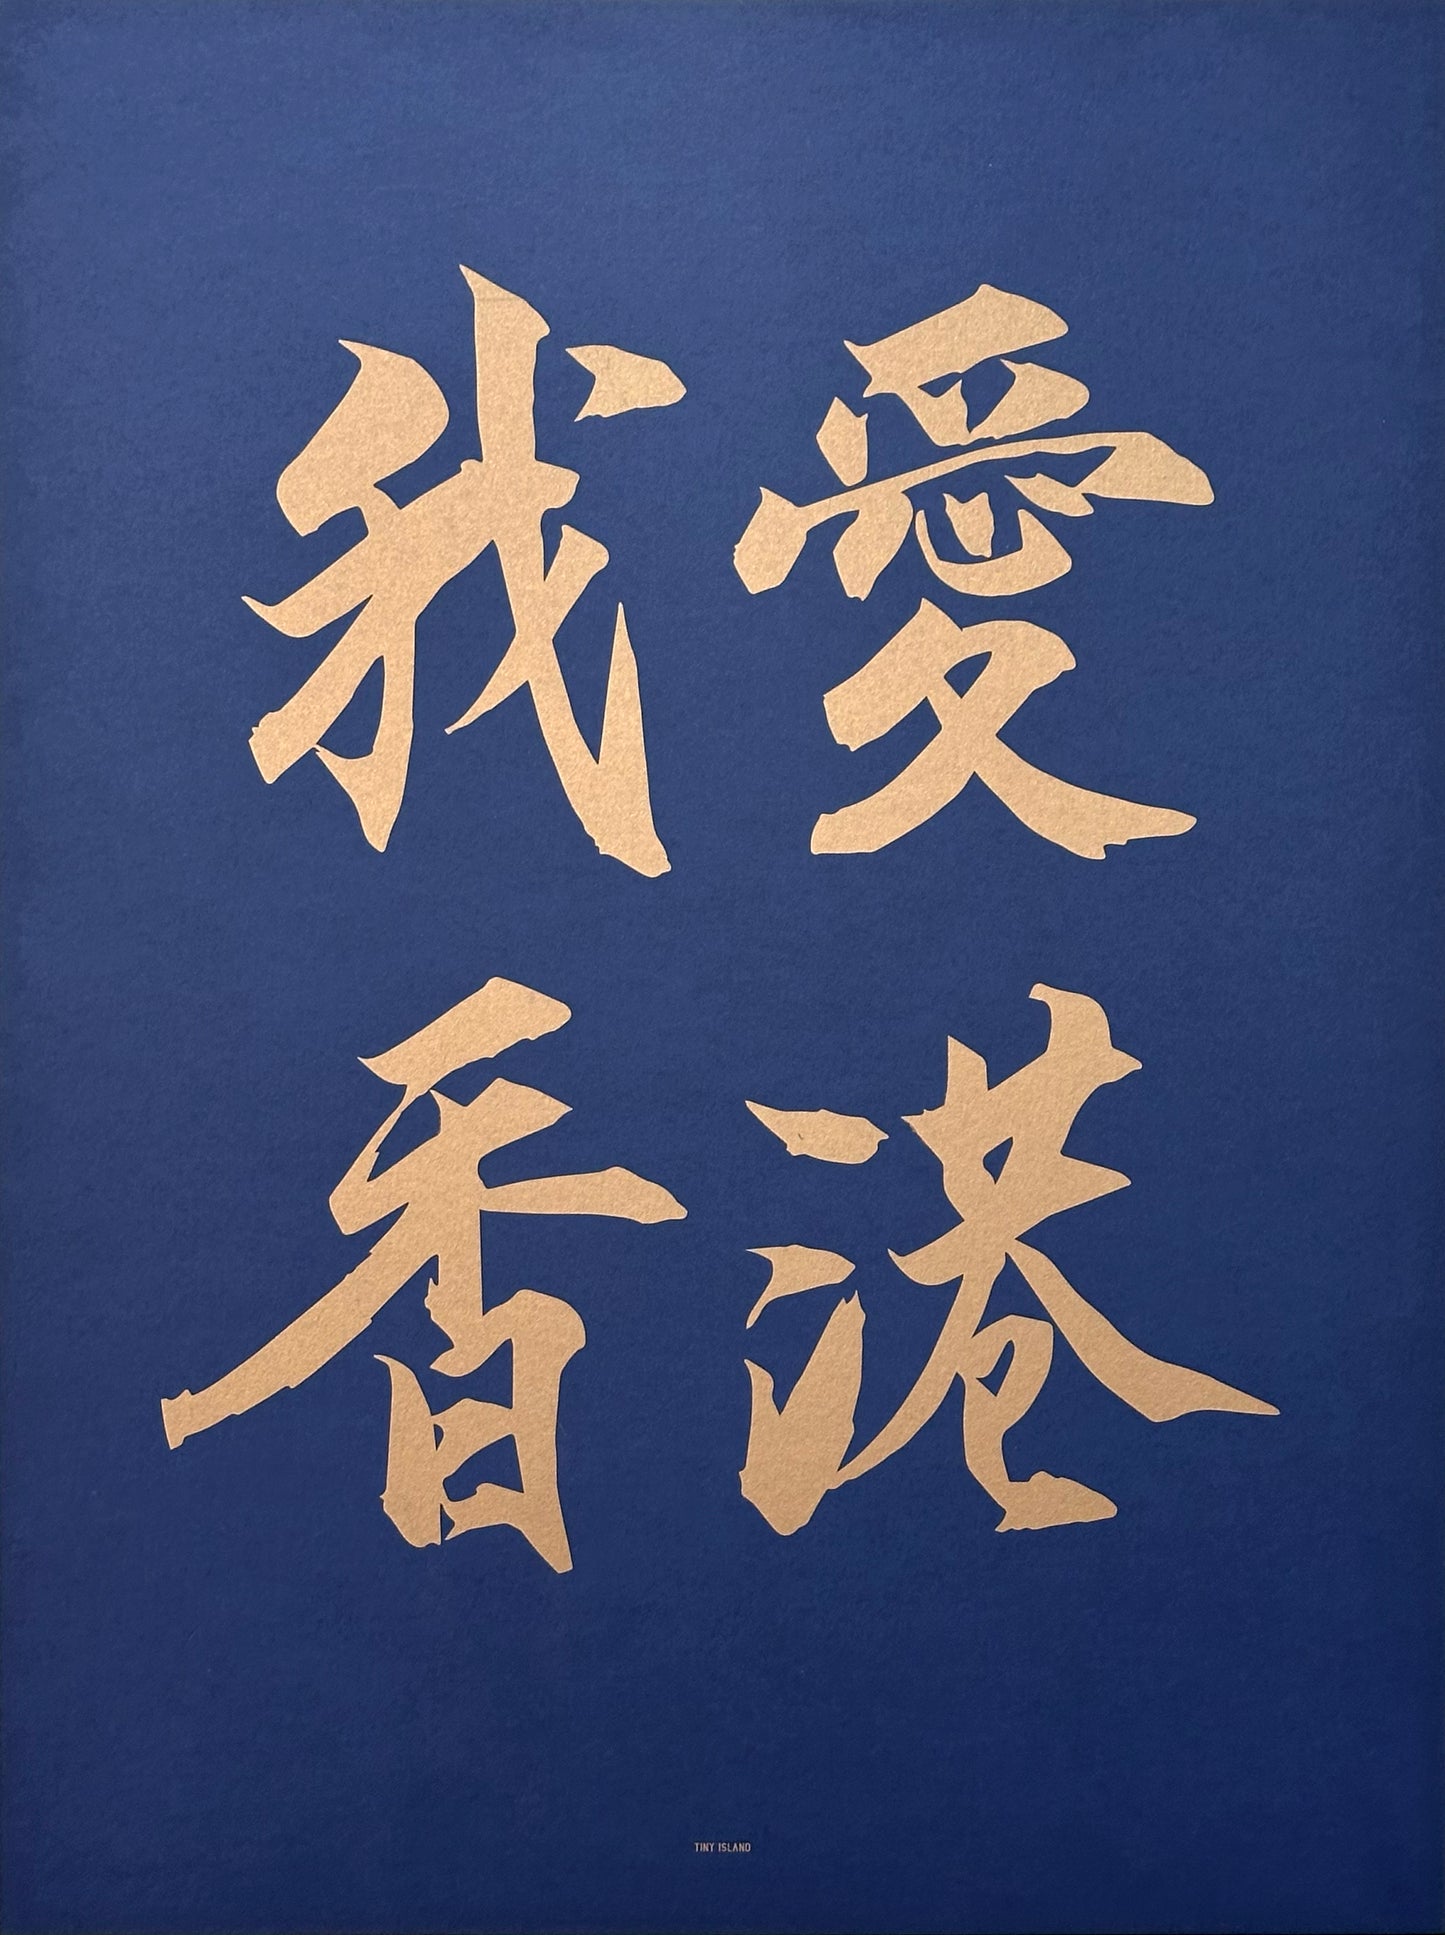 我愛
香港
TINY ISLAND